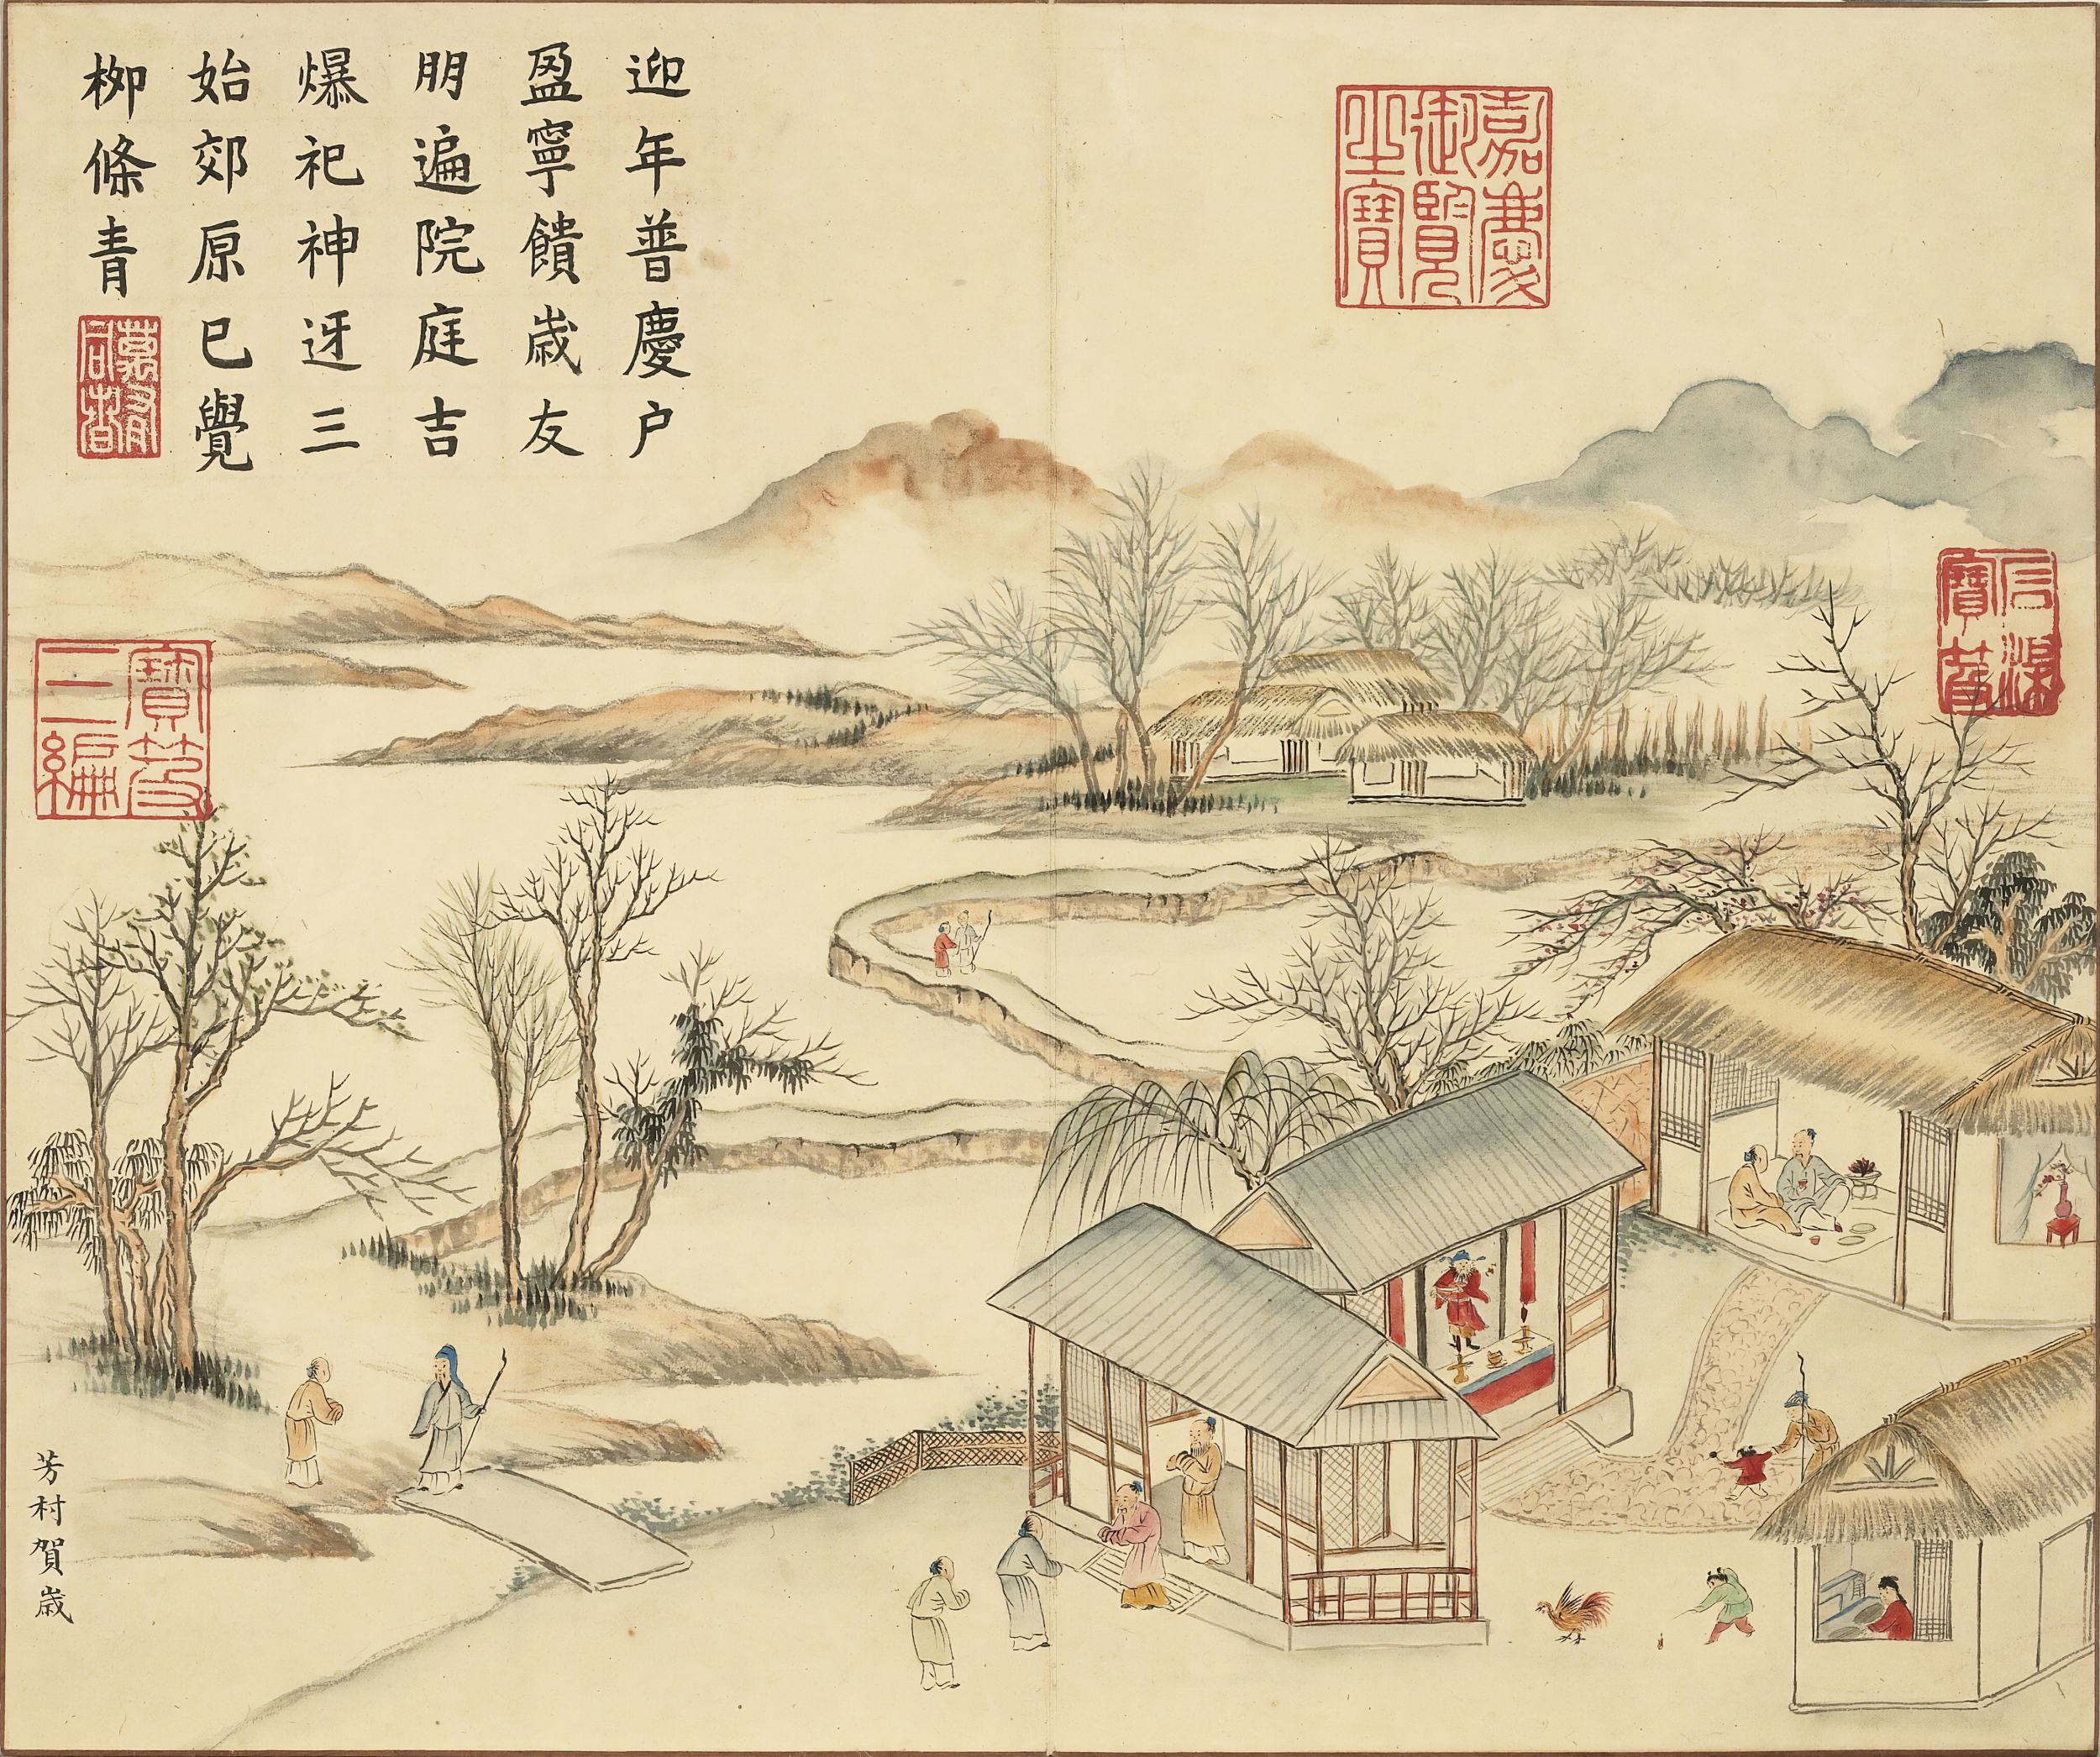 石渠寶笈
嘉慶御覽之寶
迎年普慶户
盈寧饋歲友
朋遍院庭吉
爆祀神迓三
始郊原已覺
栁條青
寶笈三編
芳村賀歲